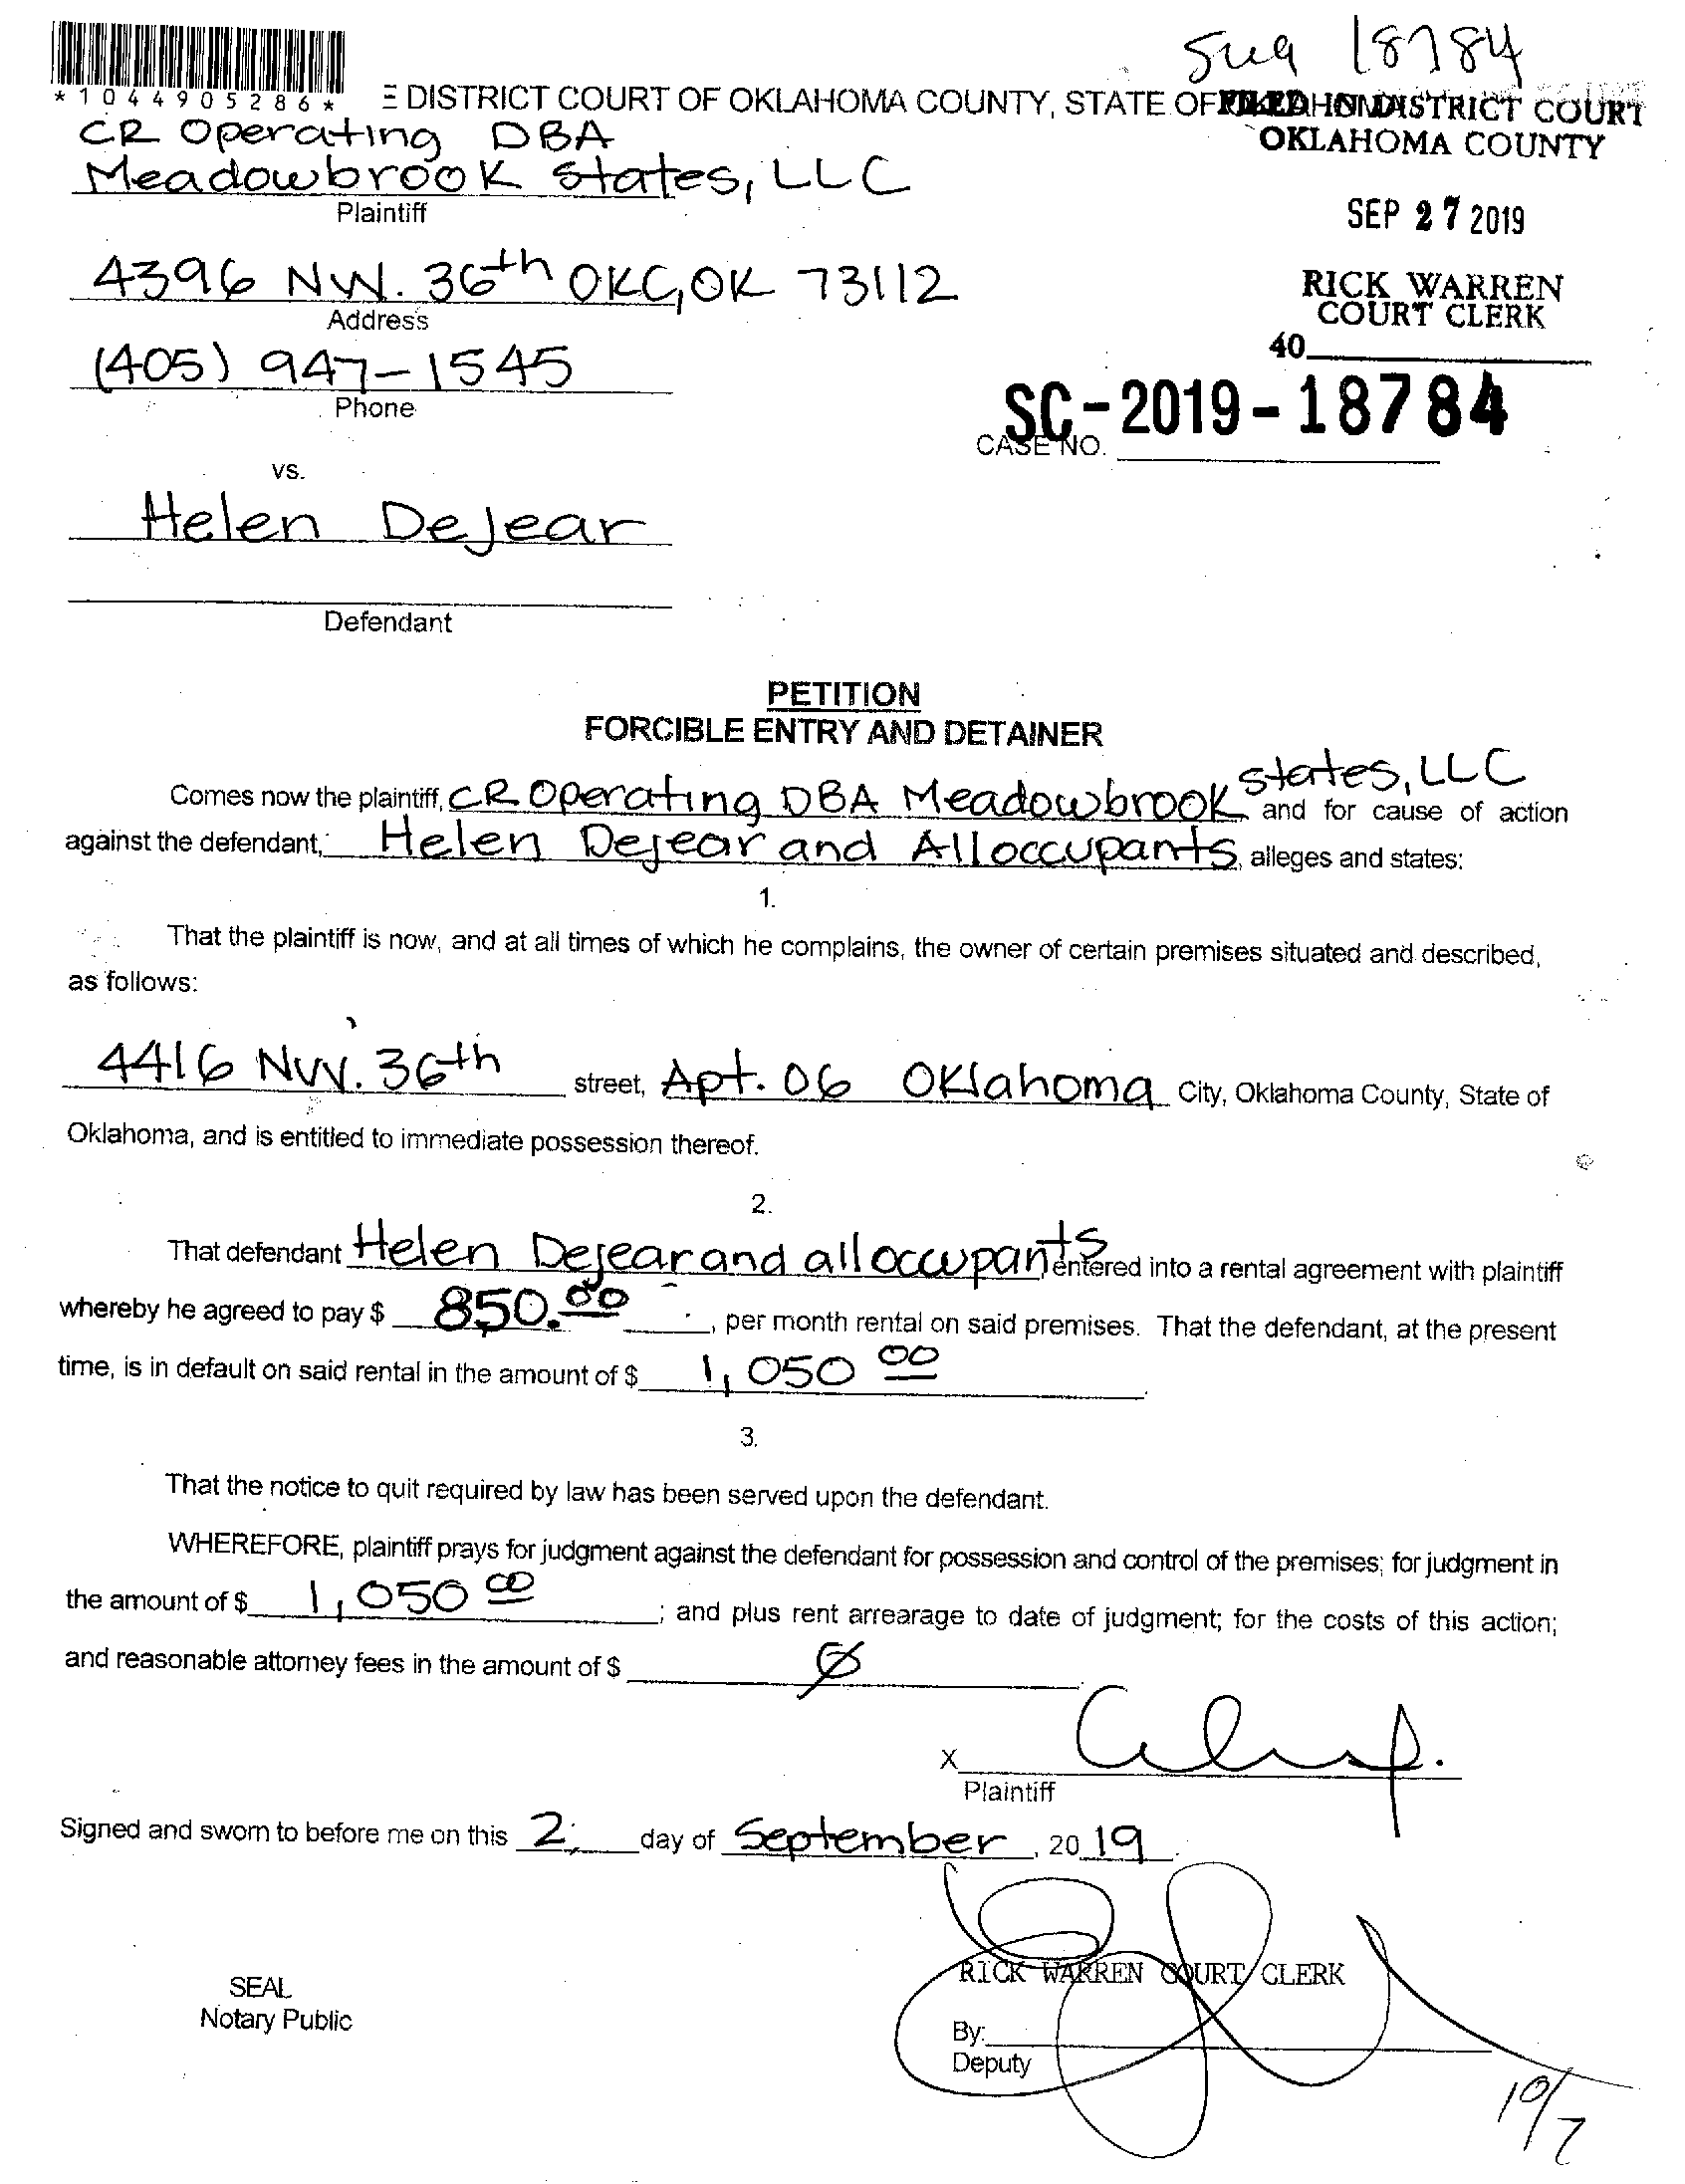 Sug 18784
*1044905286*
E DISTRICT COURT OF OKLAHOMA COUNTY, STATE OF
FILED IN DISTRICT COURT
OKLAHOMA COUNTY
CR Operating DBA
Meadowbrook States, LLC
Plaintiff
SEP 27 2019
4396 NW. 36th OKC, OK 73112
Address
RICK WARREN
COURT CLERK
40
(405) 947-1545
Phone
SC-2019-18784
CASE NO.
vs.
Helen DeJear
Defendant
PETITION
FORCIBLE ENTRY AND DETAINER
Comes now the plaintiff, CR Operating DBA Meadowbrook States, LLC and for cause of action
against the defendant, Helen Dejear and All occupants, alleges and states:
1.
That the plaintiff is now, and at all times of which he complains, the owner of certain premises situated and described,
as follows:
4416 NW. 36th street, Apt. 06 Oklahoma City, Oklahoma County, State of
Oklahoma, and is entitled to immediate possession thereof.
2.
That defendant Helen Dejear and all occupants entered into a rental agreement with plaintiff
whereby he agreed to pay $ 850.00, per month rental on said premises. That the defendant, at the present
time, is in default on said rental in the amount of $ 1,050 00
3.
That the notice to quit required by law has been served upon the defendant.
WHEREFORE, plaintiff prays for judgment against the defendant for possession and control of the premises; for judgment in
the amount of $ 1,050 00; and plus rent arrearage to date of judgment; for the costs of this action;
and reasonable attorney fees in the amount of $ Ø
X
Plaintiff
Signed and sworn to before me on this 2 day of September, 2019.
RICK WARREN COURT CLERK
SEAL
Notary Public
By:
Deputy
10/7